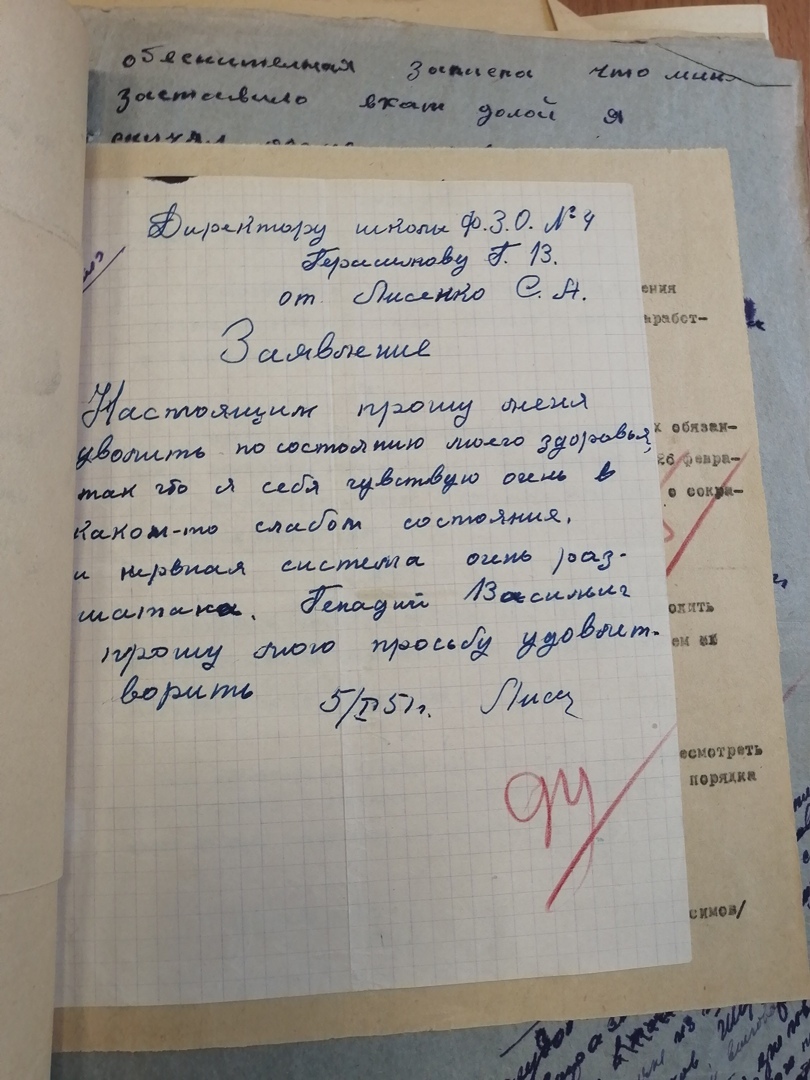 обеснителная записка что мин
заставило ехат долой я
Директору школы Ф.З.О. №4
Герасимову Г. В.
от Лисенко С. А.
Заявление
Настоящим прошу меня
уволить по состоянию моего здоровья,
так что я себя чувствую очень в
каком-то слабом состояния.
и нервная система очень раз-
шатана. Генадий Васильиг
прошу мою просьбу удовлет-
ворить
5/I 51г. Лисе
ения
аработ-
к обязан-
26 февра-
о сокра-
олить
ем ей
есмотреть
порядка
симов/